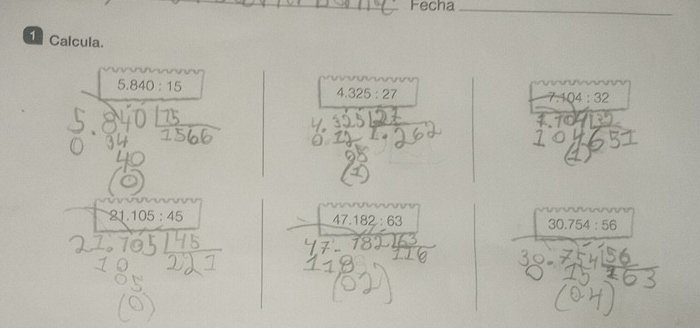 Fecha
1 Calcula.
5.840 : 15
4.325 : 27
7.104 : 32
5.840 15
4.325 27
7.104 32
0 34 1566
0.12 1.262
104 651
40
25
(1)
(0)
(1)
21.105 : 45
47.182 : 63
30.754 : 56
21.705 45
47.782 63
30.754 56
10 221
118 116
0 15 163
05
(02)
(04)
(0)